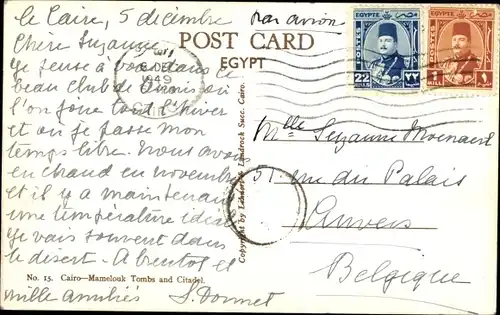 Le Caire, 5 décembre
Chère Suzanne,
Je pense à vous dans ce
beau club de
l'on joue tout l'hiver
et où je passe mon
temps libre. Nous avons
eu chaud en novembre
et il y a maintenant
une température idéale
Je vais souvent dans
le desert. A bientot et
mille amitiés S. Donnet
No. 15. Cairo—Mamelouk Tombs and Citadel.
Par avion
POST CARD
EGYPT
6 DE
1949
Copyright by Lehnert & Landrock Succ. Cairo.
EGYPTE
POSTES
22
MILLS
٢٢
EGYPTE
POSTES
1
MILL
١
Mlle Suzanne Moenaert
51 rue du Palais
Anvers
Belgique